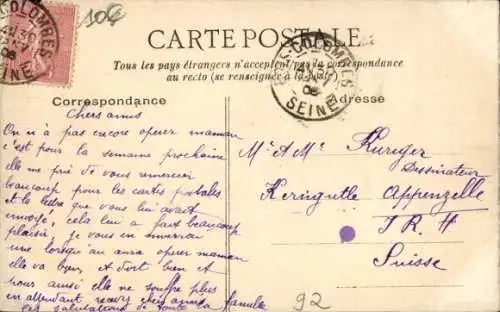 10€
COLOMBES
SEINE
CARTE POSTALE
Tous les pays étrangers n'acceptent pas la correspondance
au recto (se renseigner à la poste)
COLOMBES
SEINE
Correspondance
Adresse
Chers amis
On n'a pas encore operer maman
c'est pour la semaine prochaine
elle me prie de vous remercier
beaucoup pour les cartes postales
et la lettre que vous lui avait
envoyé, cela lui a fait beaucoup
plaisir, je vous en enverrai
une lorsqu'on aura operer maman
elle va bien, et dort bien et
pour ainsi elle ne souffre plus
en attendant recevez chers amis
les salutations de toute la famille
Mr & Me Kuriger
Dessinateur
Appenzelle
I. R. H
Suisse
92